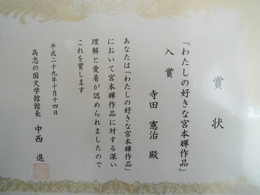 賞状
「わたしの好きな宮本輝作品」
入賞
寺田 憲治 殿
あなたは「わたしの好きな宮本輝作品」
において宮本輝作品に対する深い
理解と愛着が認められましたので
これを賞します
平成二十九年十月十四日
高志の国文学館館長 中西 進